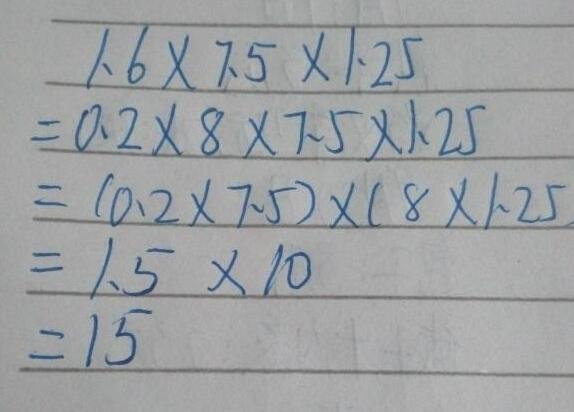 1.6×7.5×1.25
=0.2×8×7.5×1.25
=(0.2×7.5)×(8×1.25
=1.5×10
=15